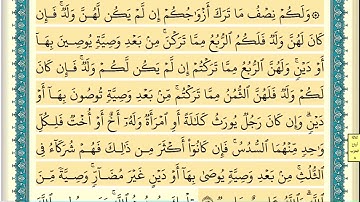 ۞ وَلَكُمْ نِصْفُ مَا تَرَكَ أَزْوَٰجُكُمْ إِن لَّمْ يَكُن لَّهُنَّ وَلَدٌ ۚ فَإِن
كَانَ لَهُنَّ وَلَدٌ فَلَكُمُ ٱلرُّبُعُ مِمَّا تَرَكْنَ ۚ مِنۢ بَعْدِ وَصِيَّةٍ يُوصِينَ بِهَآ
أَوْ دَيْنٍ ۚ وَلَهُنَّ ٱلرُّبُعُ مِمَّا تَرَكْتُمْ إِن لَّمْ يَكُن لَّكُمْ وَلَدٌ ۚ فَإِن
كَانَ لَكُمْ وَلَدٌ فَلَهُنَّ ٱلثُّمُنُ مِمَّا تَرَكْتُم ۚ مِّنۢ بَعْدِ وَصِيَّةٍ تُوصُونَ بِهَآ أَوْ
دَيْنٍ ۗ وَإِن كَانَ رَجُلٌ يُورَثُ كَلَٰلَةً أَوِ ٱمْرَأَةٌ وَلَهُۥٓ أَخٌ أَوْ أُخْتٌ فَلِكُلِّ
وَٰحِدٍ مِّنْهُمَا ٱلسُّدُسُ ۚ فَإِن كَانُوٓا۟ أَكْثَرَ مِن ذَٰلِكَ فَهُمْ شُرَكَآءُ فِى
ٱلثُّلُثِ ۚ مِنۢ بَعْدِ وَصِيَّةٍ يُوصَىٰ بِهَآ أَوْ دَيْنٍ غَيْرَ مُضَآرٍّ ۚ وَصِيَّةً مِّنَ